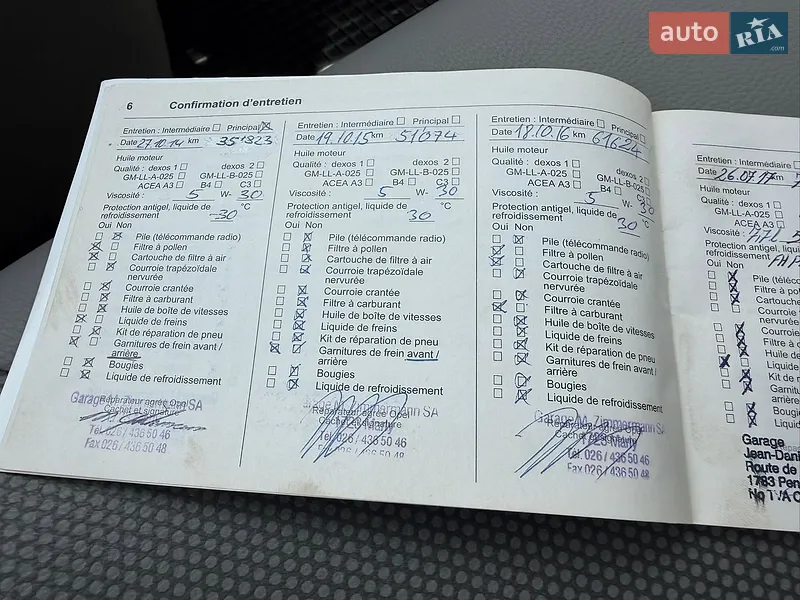 auto RIA .com
6 Confirmation d'entretien
Entretien : Intermédiaire Principal
Date 27.10.14 km 35'323
Huile moteur
Qualité : dexos 1 dexos 2
GM-LL-A-025 GM-LL-B-025
ACEA A3 B4 C3
Viscosité : 5 W- 30
Protection antigel, liquide de
refroidissement -30 °C
Oui Non
Pile (télécommande radio)
Filtre à pollen
Cartouche de filtre à air
Courroie trapézoïdale
nervurée
Courroie crantée
Filtre à carburant
Huile de boîte de vitesses
Liquide de freins
Kit de réparation de pneu
Garnitures de frein avant /
arrière
Bougies
Liquide de refroidissement
Réparateur agréé Opel
Cachet et signature
Tel. 026 / 436 50 46
Fax 026 / 436 50 48
Entretien : Intermédiaire Principal
Date 19.10.15 km 51'374
Huile moteur
Qualité : dexos 1 dexos 2
GM-LL-A-025 GM-LL-B-025
ACEA A3 B4 C3
Viscosité : 5 W- 30
Protection antigel, liquide de
refroidissement 30 °C
Oui Non
Pile (télécommande radio)
Filtre à pollen
Cartouche de filtre à air
Courroie trapézoïdale
nervurée
Courroie crantée
Filtre à carburant
Huile de boîte de vitesses
Liquide de freins
Kit de réparation de pneu
Garnitures de frein avant /
arrière
Bougies
Liquide de refroidissement
Réparateur agréé Opel
Cachet et signature
Tel. 026 / 436 50 46
Fax 026 / 436 50 48
Entretien : Intermédiaire Principal
Date 18.10.16 km 61'624
Huile moteur
Qualité : dexos 1 dexos 2
GM-LL-A-025 GM-LL-B-025
ACEA A3 B4 C3
Viscosité : 5 W- 30
Protection antigel, liquide de
refroidissement 30 °C
Oui Non
Pile (télécommande radio)
Filtre à pollen
Cartouche de filtre à air
Courroie trapézoïdale
nervurée
Courroie crantée
Filtre à carburant
Huile de boîte de vitesses
Liquide de freins
Kit de réparation de pneu
Garnitures de frein avant /
arrière
Bougies
Liquide de refroidissement
Garage M. Zimmermann SA
Réparateur agréé Opel
Cachet et signature
Tel. 026 / 436 50 46
Fax 026 / 436 50 48
Entretien : Intermédiaire
Date 26.07.17 km
Huile moteur
Qualité : dexos 1
GM-LL-A-025
ACEA A3
Viscosité :
Protection antigel,
refroidissement
Oui Non
Pile
Filtre à
Cartouche
Courroie
nervurée
Courroie
Filtre à
Huile de
Liquide
Kit de
Garnitures
arrière
Bougies
Liquide
Garage
Jean-Dani
Route de
1783 Pen